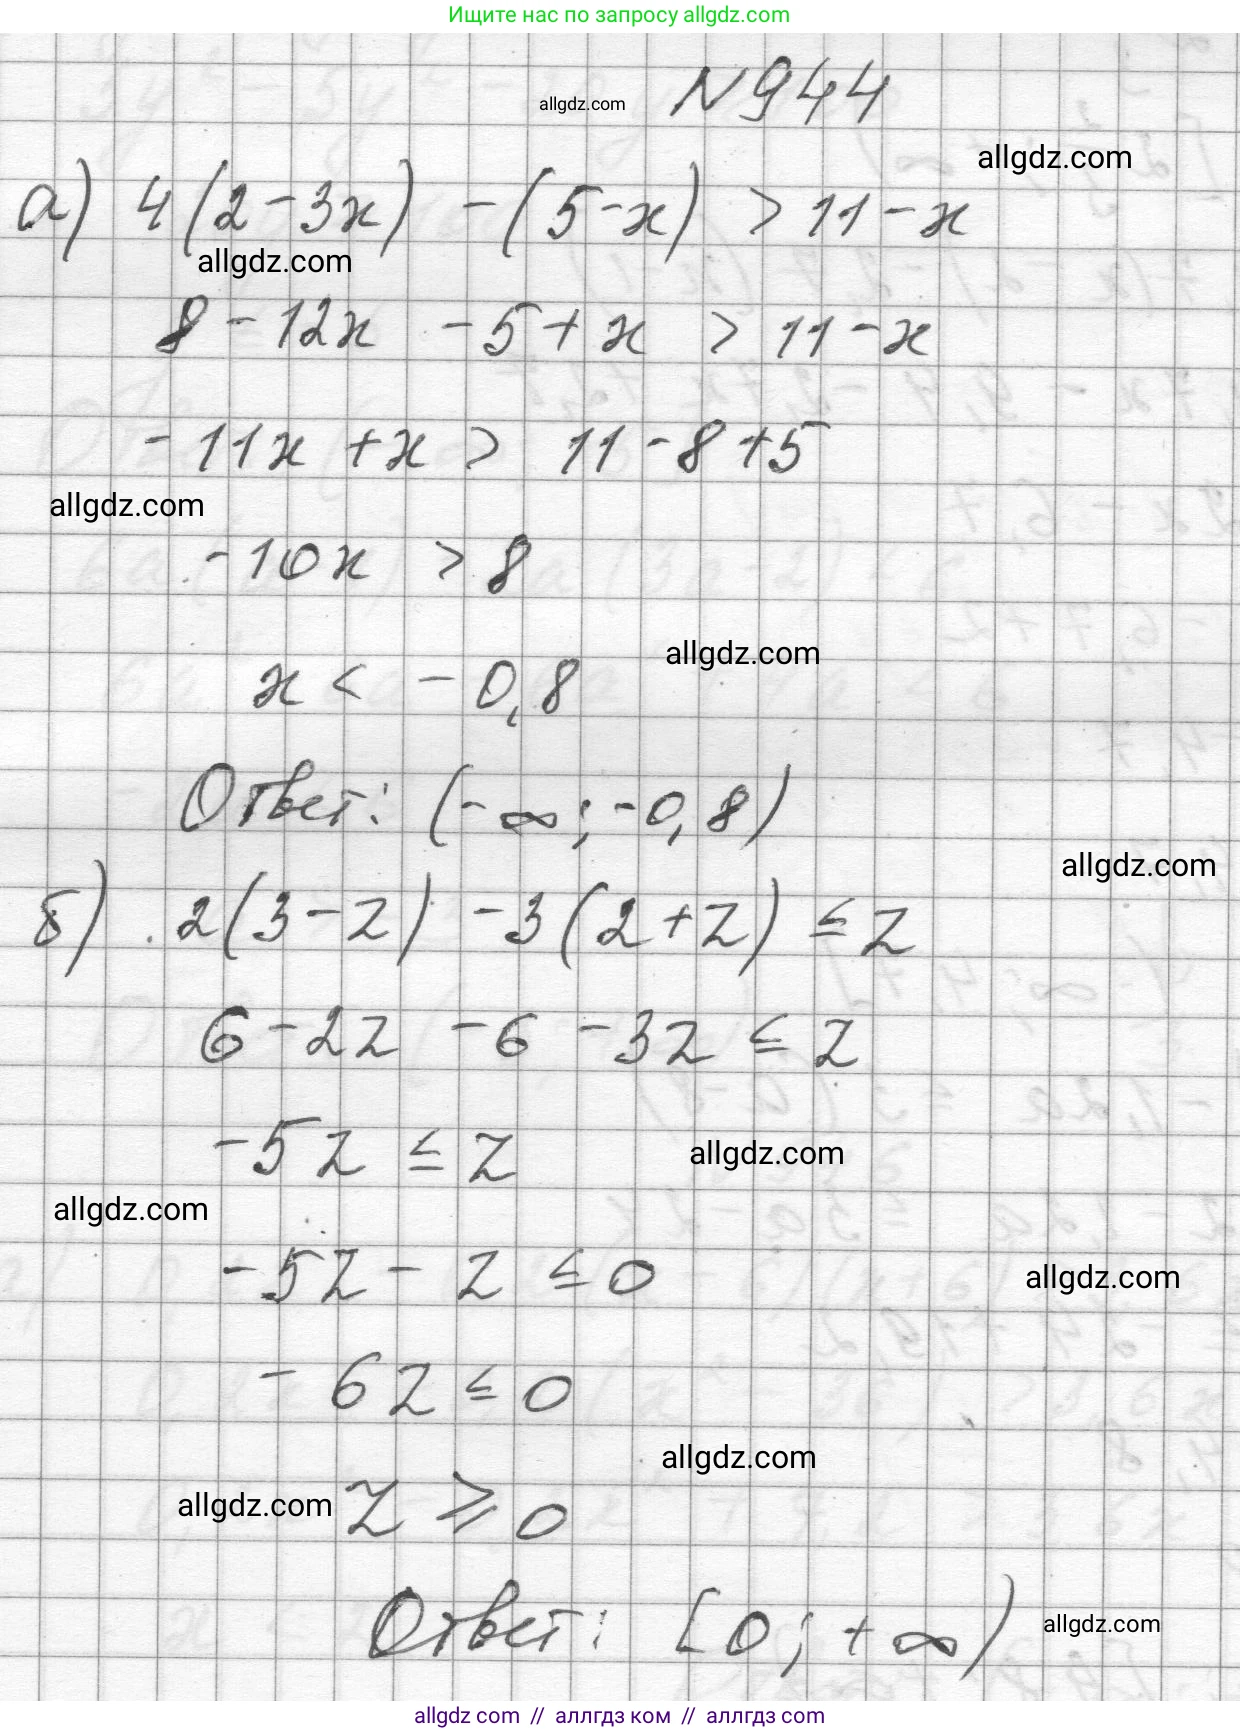 Ищите нас по запросу allgdz.com
allgdz.com
N 944
allgdz.com
а) 4(2-3x) -(5-x) > 11-x
allgdz.com
8-12x -5+x > 11-x
-11x+x > 11-8+5
allgdz.com
-10x > 8
allgdz.com
x < -0,8
Ответ: (-∞; -0,8)
allgdz.com
б) 2(3-z) -3(2+z) ≤ z
6-2z -6 -3z ≤ z
-5z ≤ z
allgdz.com
allgdz.com
-5z - z ≤ 0
allgdz.com
-6z ≤ 0
allgdz.com
allgdz.com
z ≥ 0
Ответ: [0; +∞)
allgdz.com
allgdz com // аллгдз ком // allgdz com